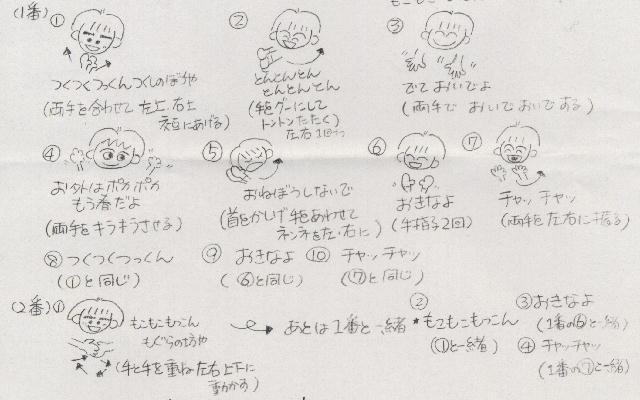 (1番) ①
つくつくつっくんつくしのぼうや
(両手を合わせて 左上.右上
交互にあげる)
②
とんとんとん
とんとんとん
(手をグーにして
トントンたたく)
左右1回づつ
③
でておいでよ
(両手で おいでおいでする)
④
お外はポカポカ
もう春だよ
(両手をキラキラさせる)
⑤
おねぼうしないで
(首をかしげ手をあわせて
ネンネを左.右に)
⑥
おきなよ
(手招き2回)
⑦
チャッ チャッ
(両手を左右に振る)
⑧ つくつくつっくん
(①と同じ)
⑨ おきなよ
(⑥と同じ)
⑩ チャッ チャッ
(⑦と同じ)
(2番) ①
もこもこもっこん
もぐらの坊や
(手と手を重ね 左右上下に
動かす)
あとは1番と一緒
②
*もこもこもっこん
(①と一緒)
③ おきなよ
(1番の⑥と一緒)
④ チャッチャッ
(1番の⑦と一緒)